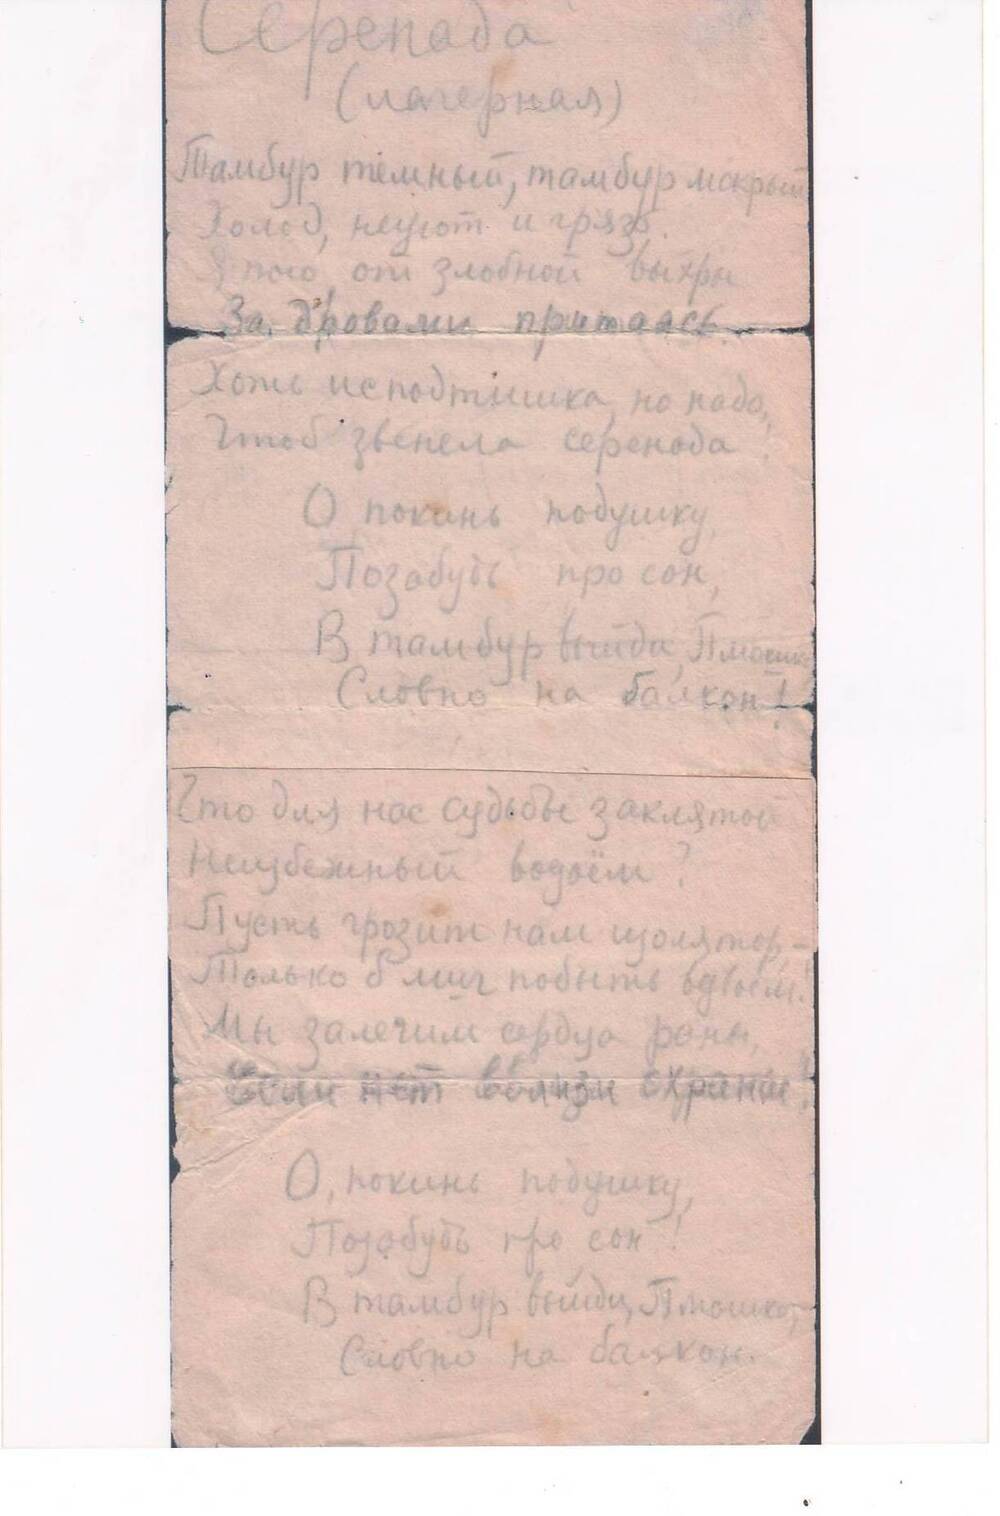 Серенада
(лагерная)
Тамбур тёмный, тамбур мокрый
Холод, неуют и грязь.
Я пою от злобной выхры
За дровами притаясь.
Хоть исподтишка, но надо,
Чтоб звенела серенада!
О покинь подушку,
Позабудь про сон,
В тамбур выйди,
Словно на балкон!
Что для нас судьбы заклятой
Неизбежный водоём?
Пусть грозит нам изолятор, –
Только б миг побыть вдвоём!
Мы залечим сердца раны,
Если нет вблизи охраны!
О, покинь подушку,
Позабудь про сон!
В тамбур выйди,
Словно на балкон.